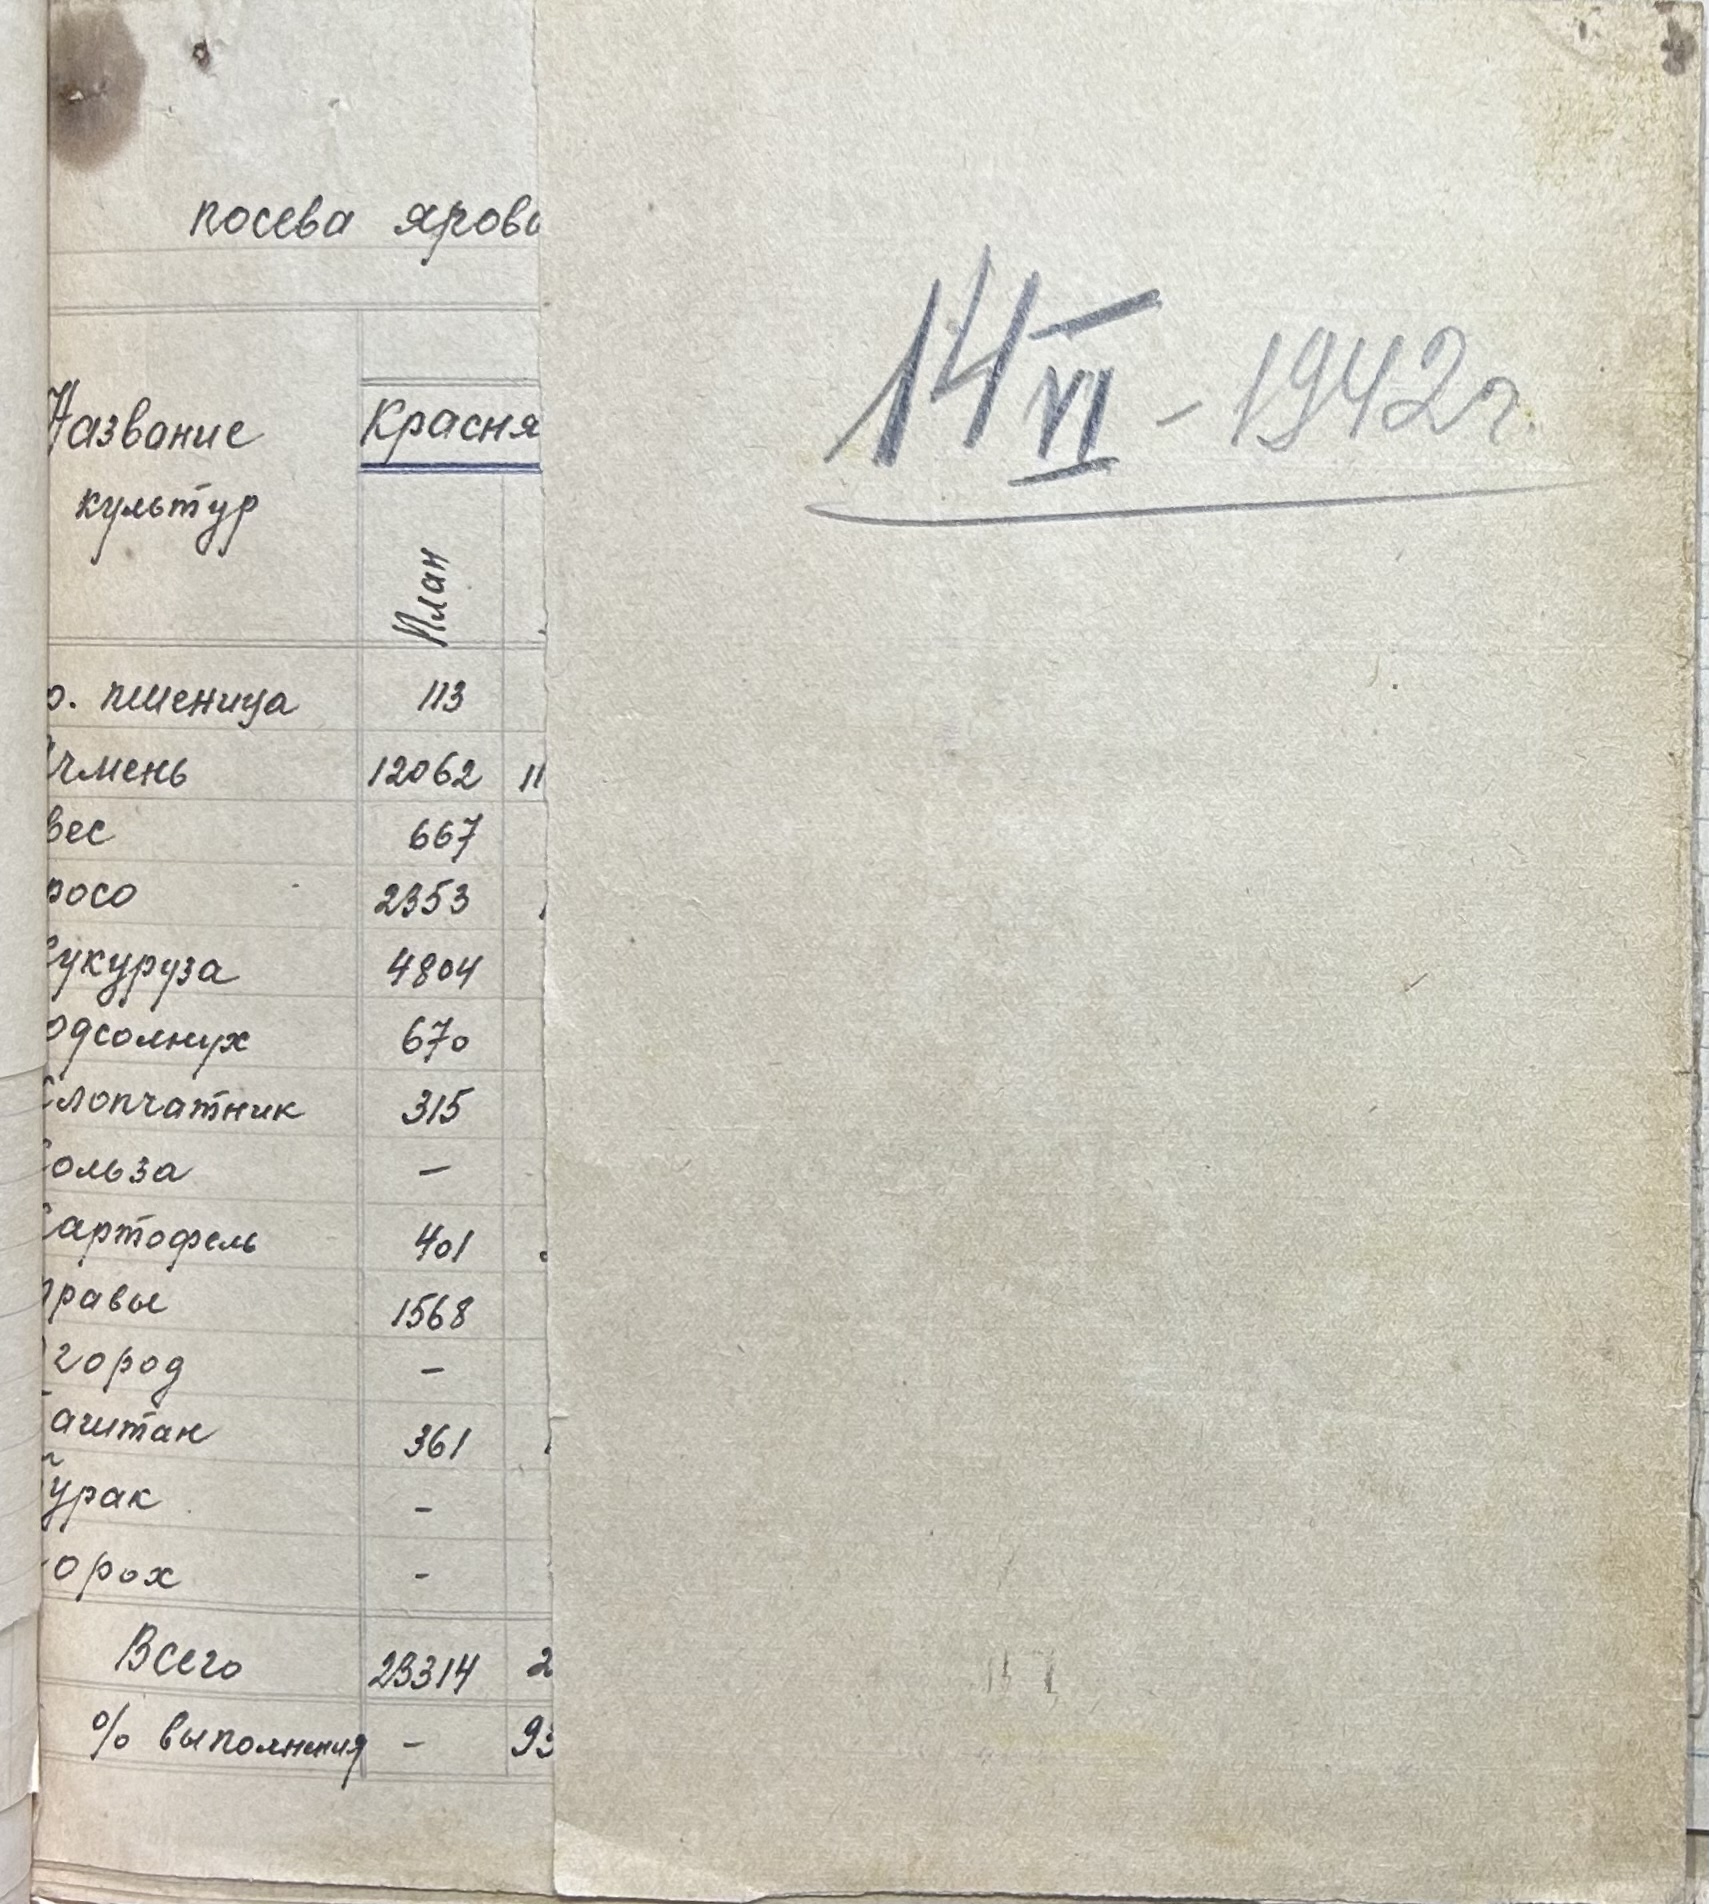 посева яровы
14 VI - 1942 г.
Название культур
Красня
План
р. пшеница 113
Ячмень 12062 11
вес 667
росо 2353
Кукуруза 4804
одсолнух 670
Хлопчатник 315
Кользa —
Картофель 401
травы 1568
Огород —
Баштан 361
Бурак -
орох -
Всего 23314 2
% выполнения - 93